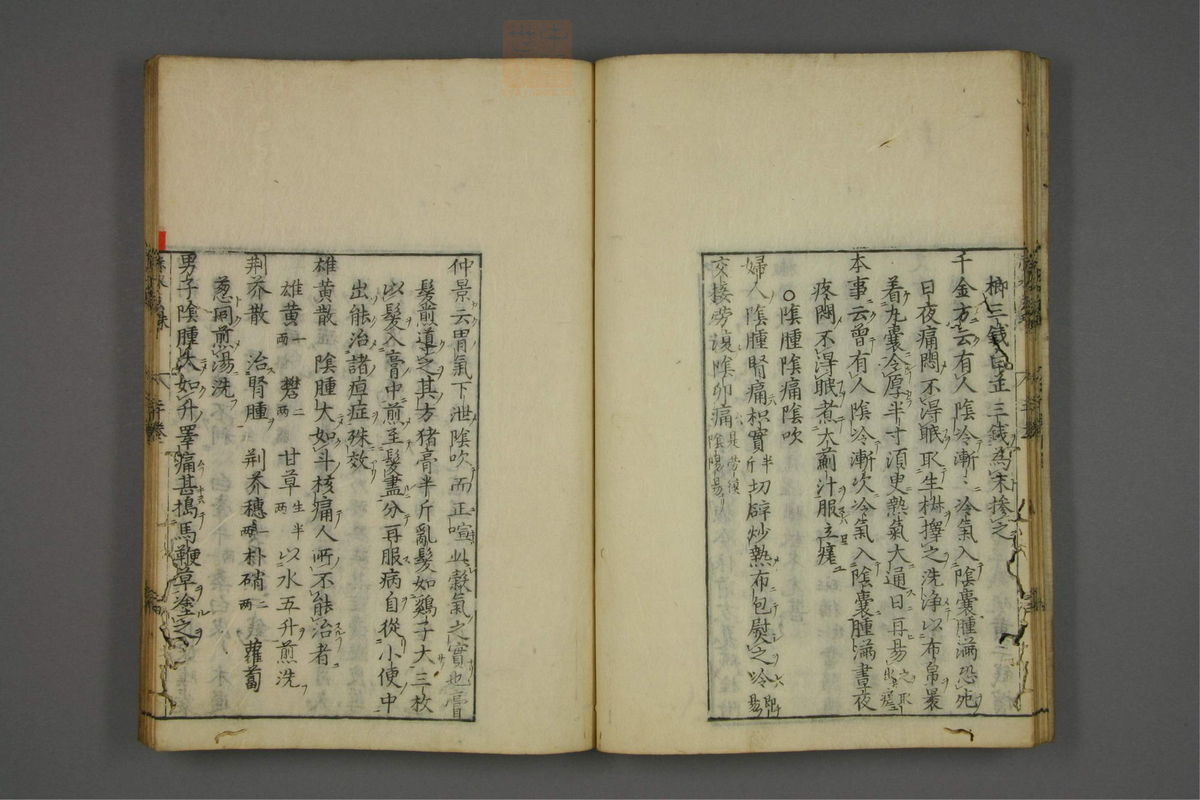 梹三錢白芷三錢為末摻之
千金方云有人陰冷漸〻冷氣入陰囊腫滿恐死
日夜痛悶不得眠取生椒擇之洗淨以布帛裹
着丸囊令厚半寸須臾熱氣大通日再易之取出瘥
本事云曾有人陰冷漸次冷氣入陰囊腫滿晝夜
疼悶不得眠煮大薊汁服立瘥
○陰腫陰痛陰吹
婦人陰腫腎痛枳實半斤切碎炒熱布包熨之冷即易
交接勞復陰卵痛
仲景云胃氣下泄陰吹而正喧此穀氣之實也膏
髮煎導之其方猪膏半斤亂髮如鷄子大三枚
以髮入膏中煎至髮盡分再服病自從小便中
出能治諸疸症殊效
雄黃散 陰腫大如斗核痛人所不能治者
雄黃一兩 礬二兩 甘草生半兩 以水五升煎洗
荆芥散 治腎腫 荆芥穗一兩 朴硝二兩 蘿蔔
葱同煎湯洗
男子陰腫大如升睪痛甚搗馬鞭草塗之